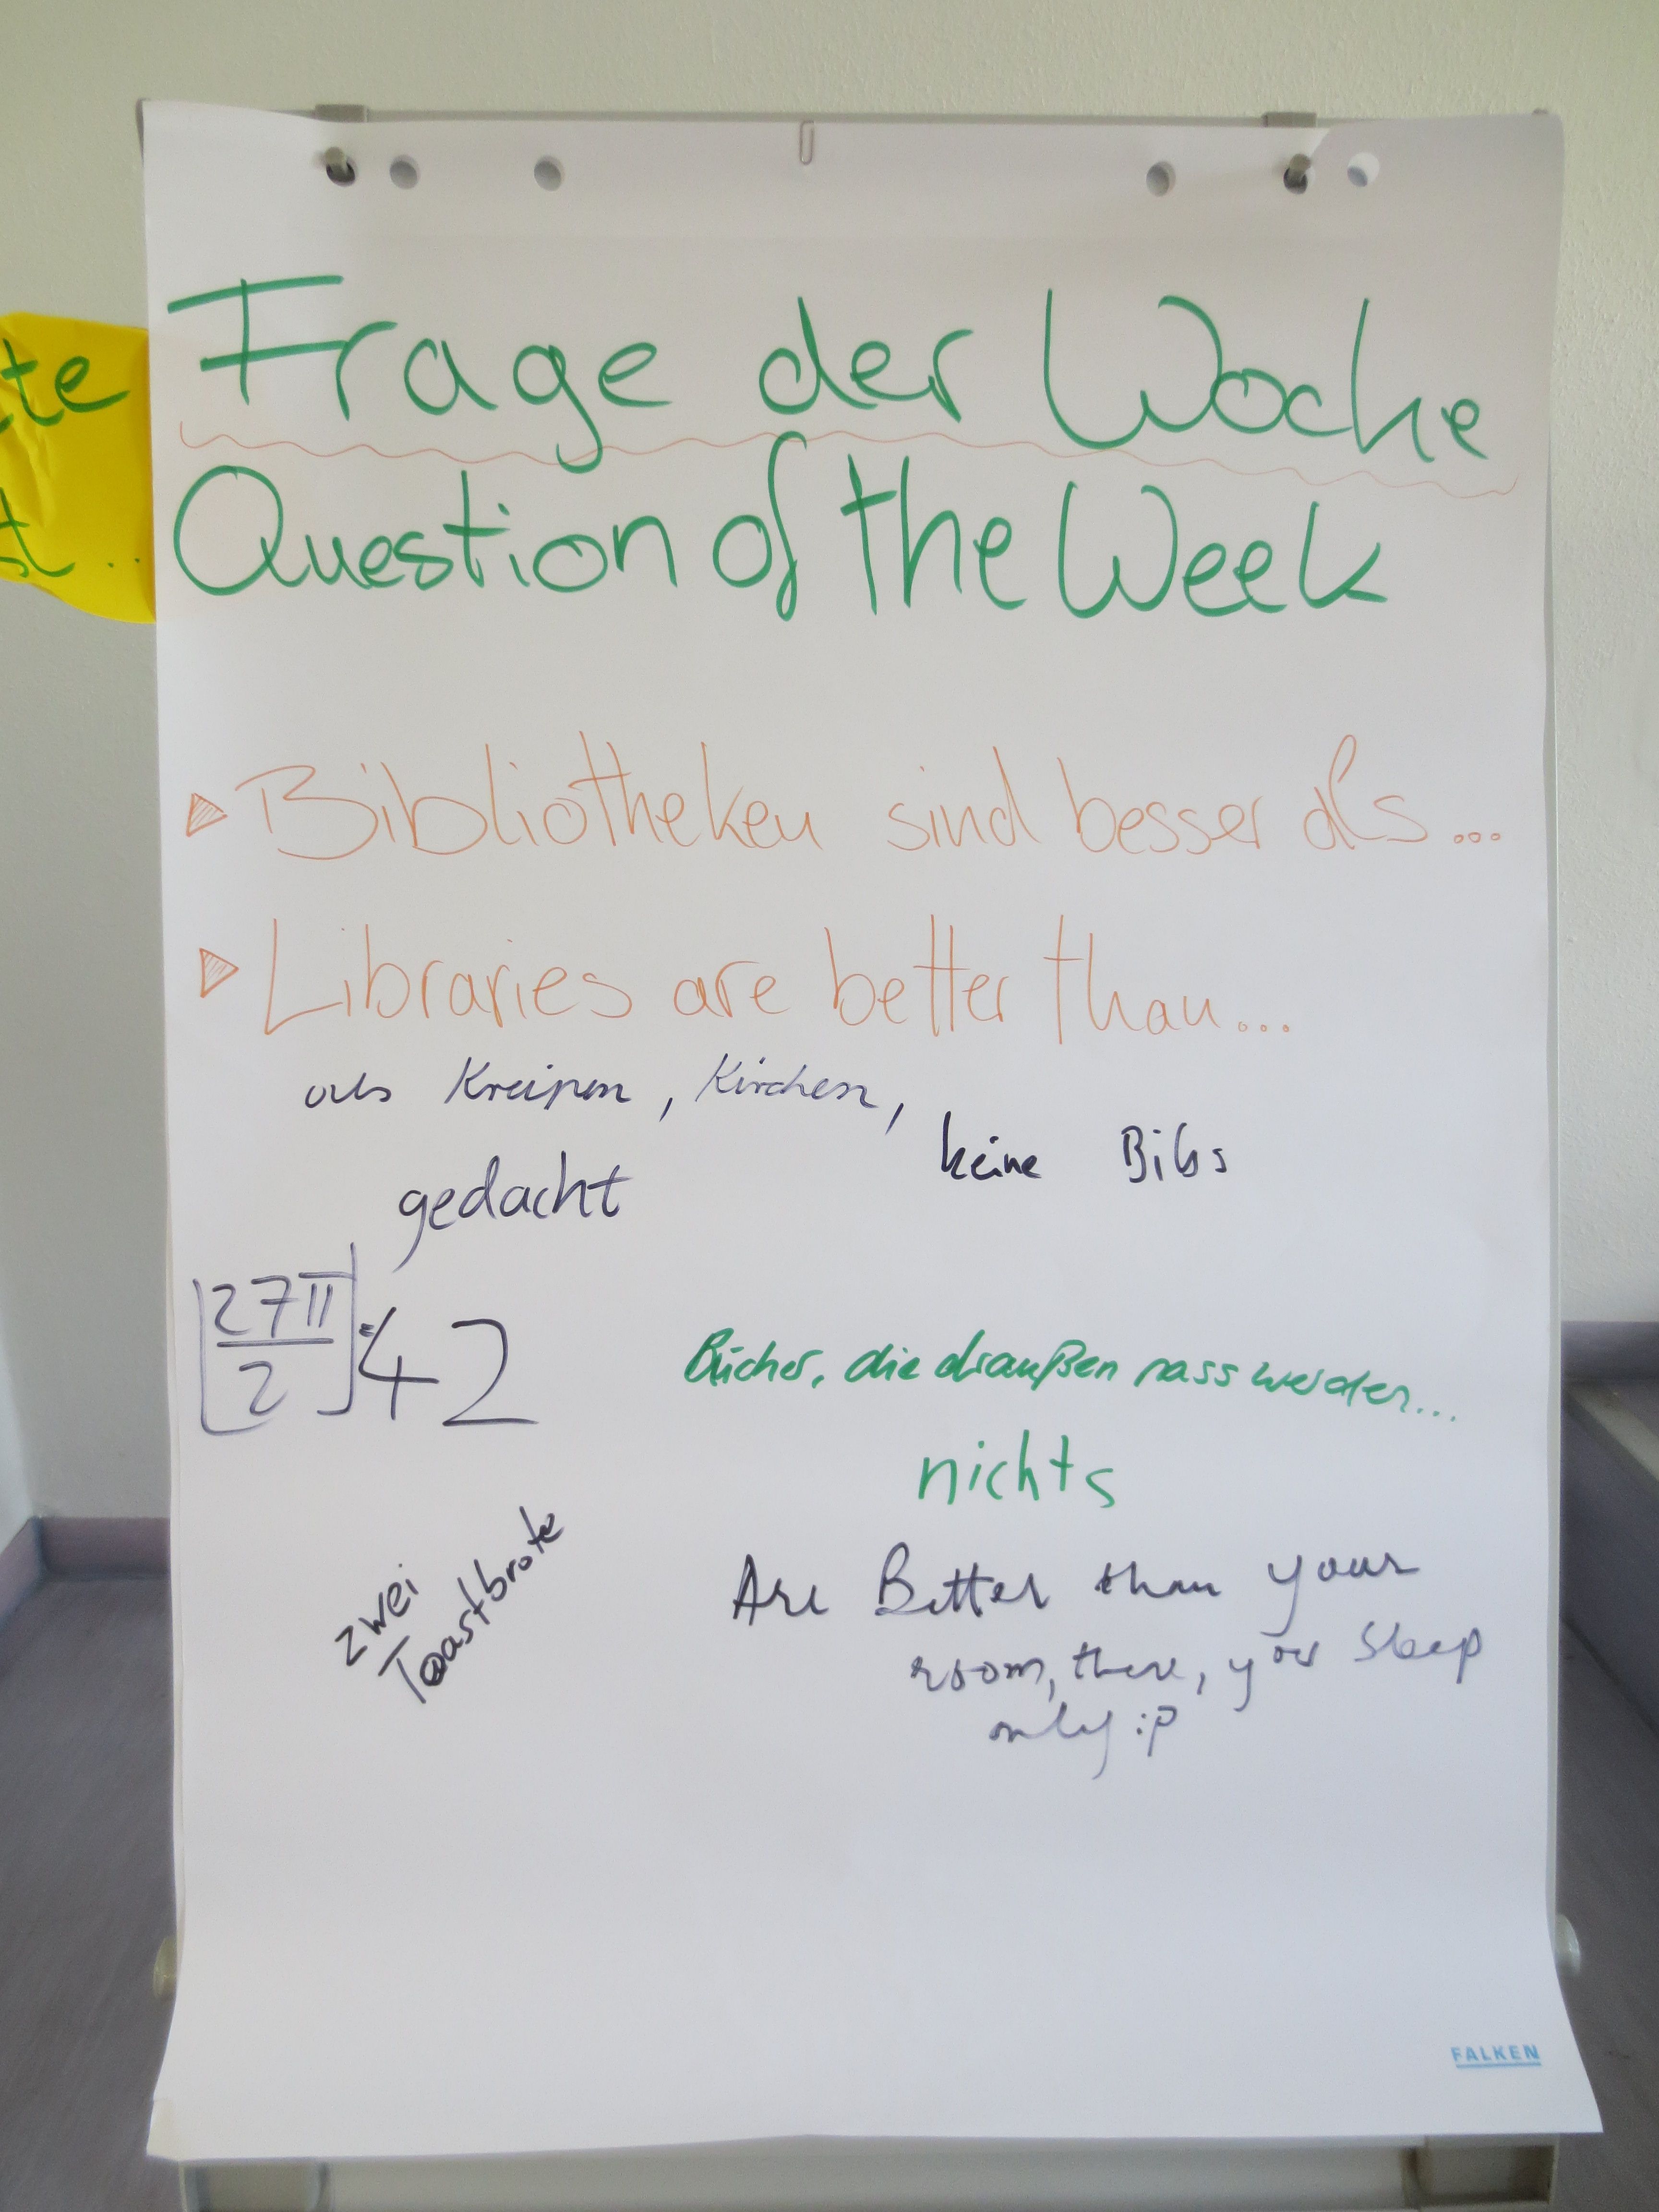 te
t...
Frage der Woche
Question of the Week
Bibliotheken sind besser als...
Libraries are better than...
als Kneipen, Kirchen,
keine Bibs
gedacht
⌊27π/2⌋=42
Bücher, die draußen nass werden...
nichts
zwei
Toastbrote
Are Better than your
room, there, you sleep
only :P
FALKEN